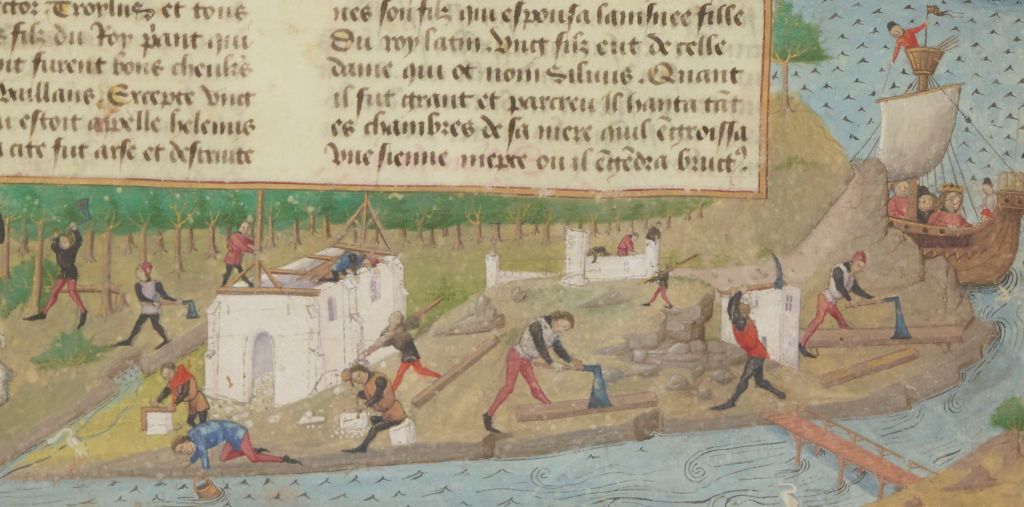 ctor Troylus et tous
s filz du Roy p̄ant qui
nt furent bons cheul̄rs
vaillans. Excepte vnct
estoit apelle helenus
a cite fut arse et destruite
nes son filz qui espousa lainsnee fille
Du roy latin. Vnct filz eut de celle
dame qui ot nom Siluius. Quant
il fut grant et parcreu Il hanta tāt
es chambres de sa mere quil ēgroissa
vne sienne niepce ou il ēgēdra brutꝰ.